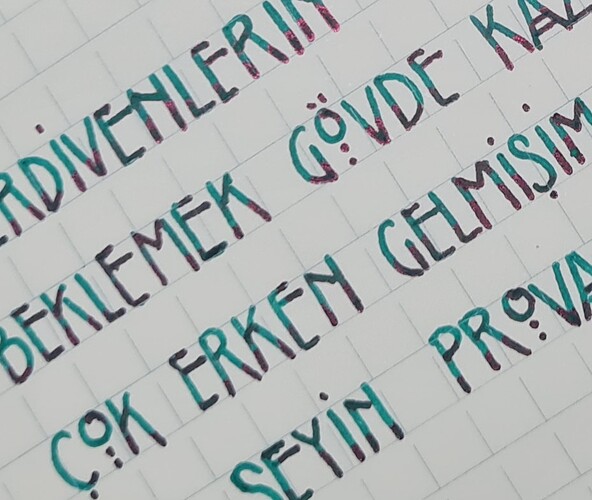 RDİVENLERİN
BEKLEMEK GÖVDE KAZ
ÇOK ERKEN GELMİŞİM
SEYİN PROVA